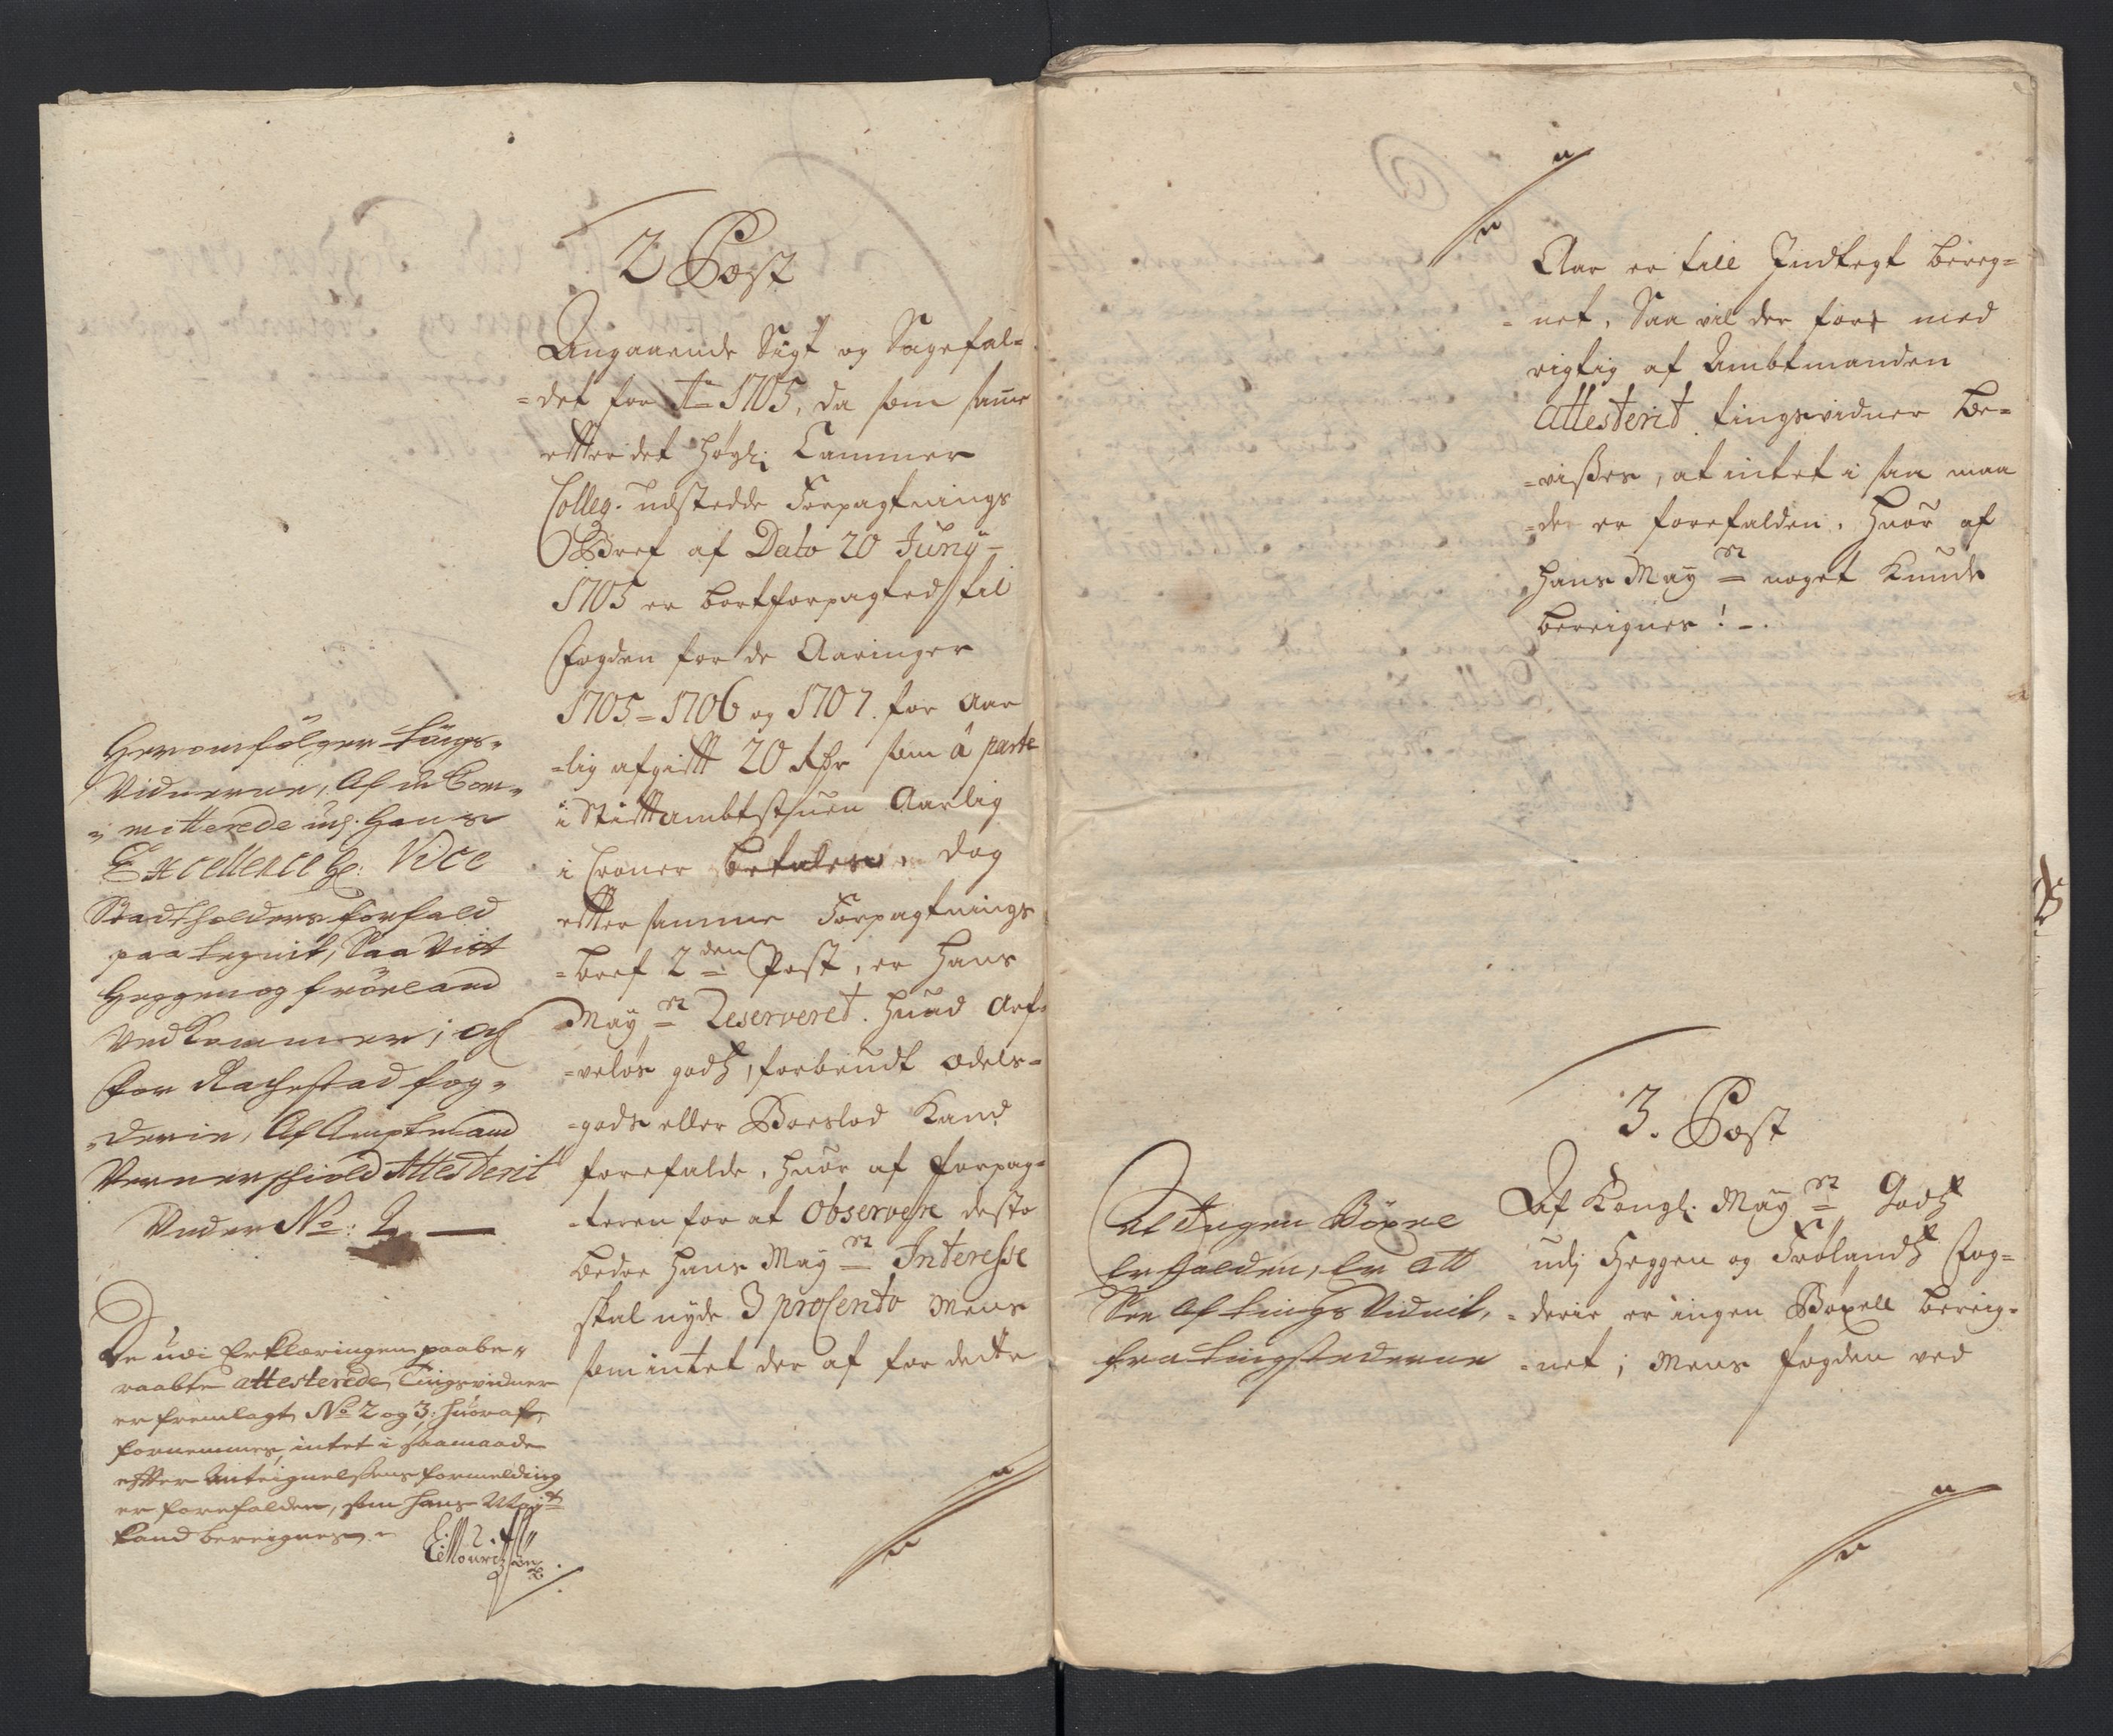 2 Post
Angaaende Sigt og Sagefal=
=det for Ao 1705, da som samme
effter det høyl: Cammer
Colleg. udstedde Forpagtnings
Bref af Dato 20 Juny
1705 er bortforpagted til
Fogden for de Aaringer
1705 = 1706 og 1707. for Aar
=lig afgifft 20 Rdr som à parte
i Stifftambtstuen Aarlig
i Croner betales, dog
effter samme Forpagtnings
=bref 2den Post, er Hans
Mayts Reserveret. huad Arf=
=veløs godz, forbrudt odels=
=gods eller Boeslod Kand
forefalde, huor af forpag=
=teren for at observere desto
bedre Hans Mayts Interesse
skal nyde 3 procento Mens
som intet der af for dette
Herom følger tings=
Vidnerne, Af de Com=
=mitterede udj Hans
Excellence Hr: Vice
Stadtholders forfald
paa tegnit, Saa Vit
Heggen og frøeland
Vedkommer; och
for Rachestad fog=
=derie, Af Amptmand
Vernerschiold Attesterit
Under No: 2
De udi Erklæringen paabe=
raabte attesterede Tingsvidner
er fremlagt No 2 og 3: huoraf
fornemmes, intet i saamaade
effter Antegnelsens formelding
er forefalden, som hans Mayt
kand bereignes.
Aar er till Indtegt bereg=
=net, Saa vil der for med
rigtig af Ambtmanden
attesterit tingsvidner be=
=vises, at intet i saa maa
=der er forefalden. huor af
Hans Mayts noget Kunde
bereignes!
3. Post
Af Kongl. Mayts Godz
udj Heggen og Frølandz Fog=
=derie er ingen Boxell bereig=
=net; Mens fogden ved
At Ingen Böxel
Er falden, Er Att
See Af tings Vidnit,
fra tingstederne